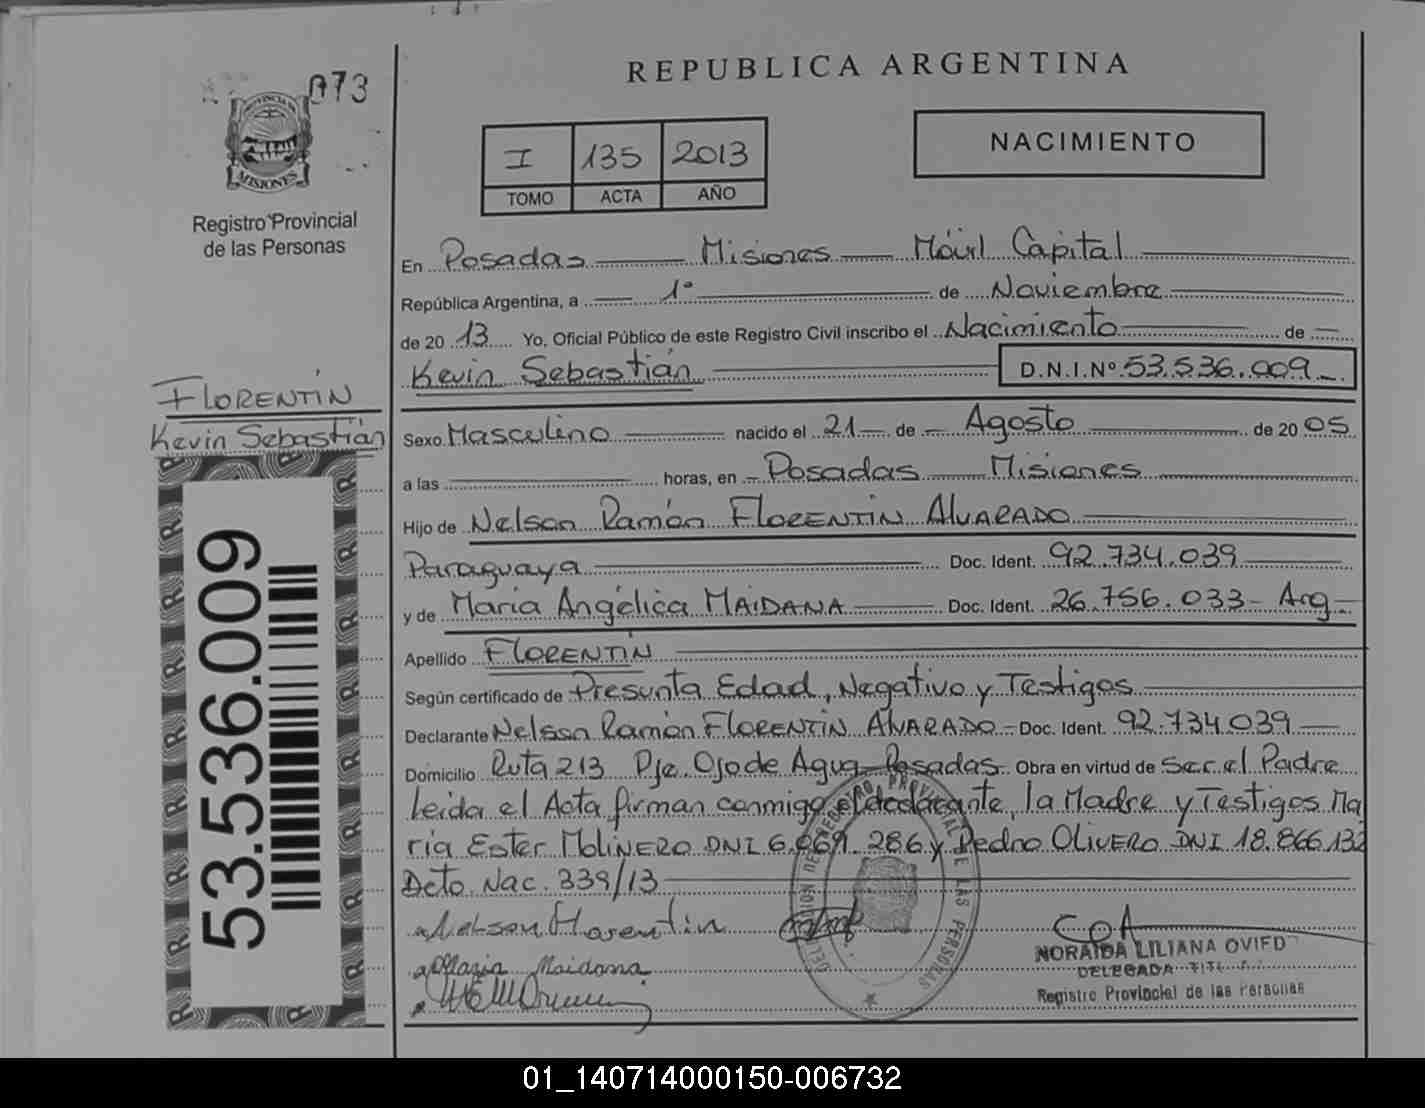 073
PROVINCIA DE
MISIONES
Registro Provincial
de las Personas
FLORENTÍN
Kevin Sebastián
53.536.009
REPUBLICA ARGENTINA
I 135 2013
TOMO ACTA AÑO
NACIMIENTO
En Posadas Misiones Móvil Capital
República Argentina, a 1º de Noviembre
de 20 13 Yo, Oficial Público de este Registro Civil inscribo el Nacimiento de
Kevin Sebastián D.N.I.Nº 53.536.009
Sexo Masculino nacido el 21 de Agosto de 20 05
a las horas, en Posadas Misiones
Hijo de Nelson Ramón FLORENTÍN ALVARADO
Paraguaya Doc. Ident. 92.734.039
y de María Angélica MAIDANA Doc. Ident. 26.756.033 - Arg
Apellido FLORENTÍN
Según certificado de Presunta Edad, Negativo y Testigos
Declarante Nelson Ramón FLORENTÍN ALVARADO - Doc. Ident. 92.734.039
Domicilio Ruta 213 Pje. Ojo de Agua - Posadas Obra en virtud de Ser el Padre
Leída el Acta firman conmigo el declarante, la Madre y Testigos Ma
ría Ester MOLINERO DNI 6.069.286 y Pedro OLIVERO DNI 18.866.132
Dcto. Nac. 339/13
Nelson Florentin
Maria Maidana
REGISTRO PROVINCIAL DE LAS PERSONAS
NORAIDA LILIANA OVIED
DELEGADA TIT
Registro Provincial de las Personas
01_140714000150-006732